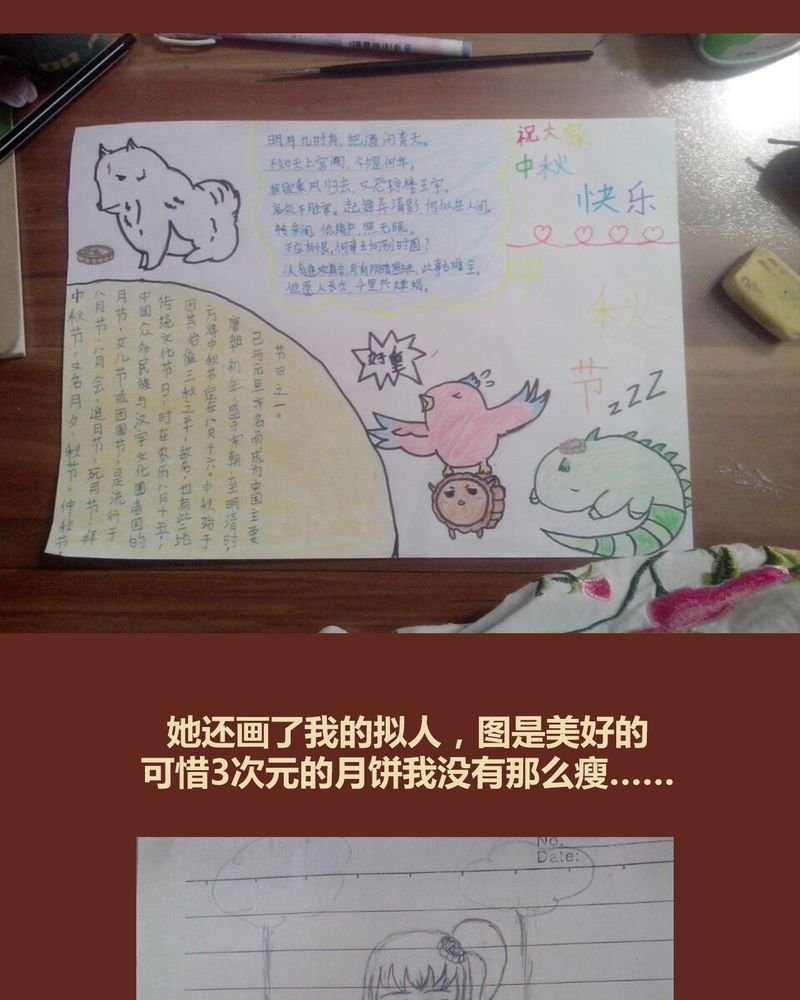 明月几时有,把酒问青天。
不知天上宫阙,今夕是何年。
我欲乘风归去,又恐琼楼玉宇。
高处不胜寒。起舞弄清影,何似在人间。
转朱阁,低绮户,照无眠。
不应有恨,何事长向别时圆?
人有悲欢离合,月有阴晴圆缺,此事古难全。
但愿人长久,千里共婵娟。
祝大家
中秋
快乐
中
秋
节
中秋节,又名月夕、秋节、仲秋节、
八月节、八月会、追月节、玩月节、拜
月节、女儿节或团圆节,是流行于
中国众多民族与汉字文化圈诸国的
传统文化节日,时在农历八月十五;
因其恰值三秋之半,故名,也有些地
方将中秋节定在八月十六。中秋始于
唐朝初年,盛于宋朝,至明清时,
已与元旦齐名而成为中国主要
节日之一。
好重
zZZ
她还画了我的拟人,图是美好的
可惜3次元的月饼我没有那么瘦……
No.
Date: